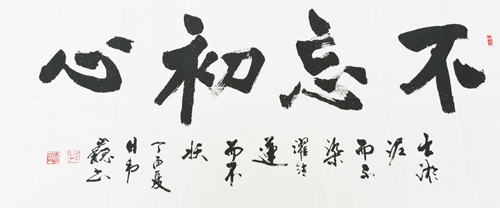 不忘初心
出淤
泥
而不
染
濯清
而不
妖
丁酉夏
日